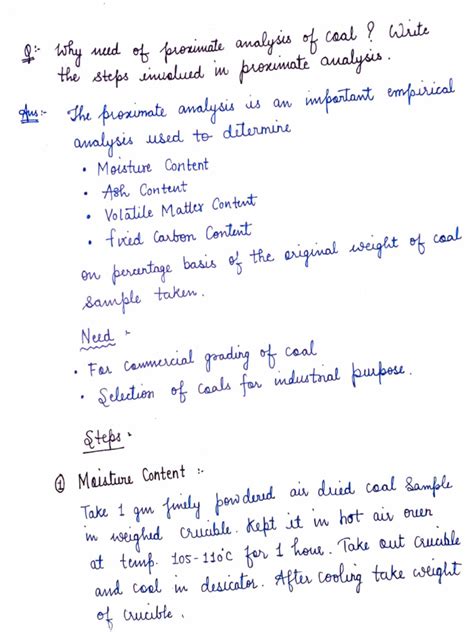 Q:- Why need of proximate analysis of coal ? Write
the steps involved in proximate analysis.
Ans:- The proximate analysis is an important empirical
analysis used to determine
• Moisture Content
• Ash Content
• Volatile Matter Content
• fixed Carbon Content
on percentage basis of the original weight of coal
sample taken.
Need :-
• For commercial grading of coal
• Selection of coals for industrial purpose.
Steps :-
① Moisture Content :-
Take 1 gm finely powdered air dried coal sample
in weighed crucible. Kept it in hot air oven
at temp. 105-110°C for 1 hour. Take out crucible
and cool in desicator. After cooling take weight
of crucible.